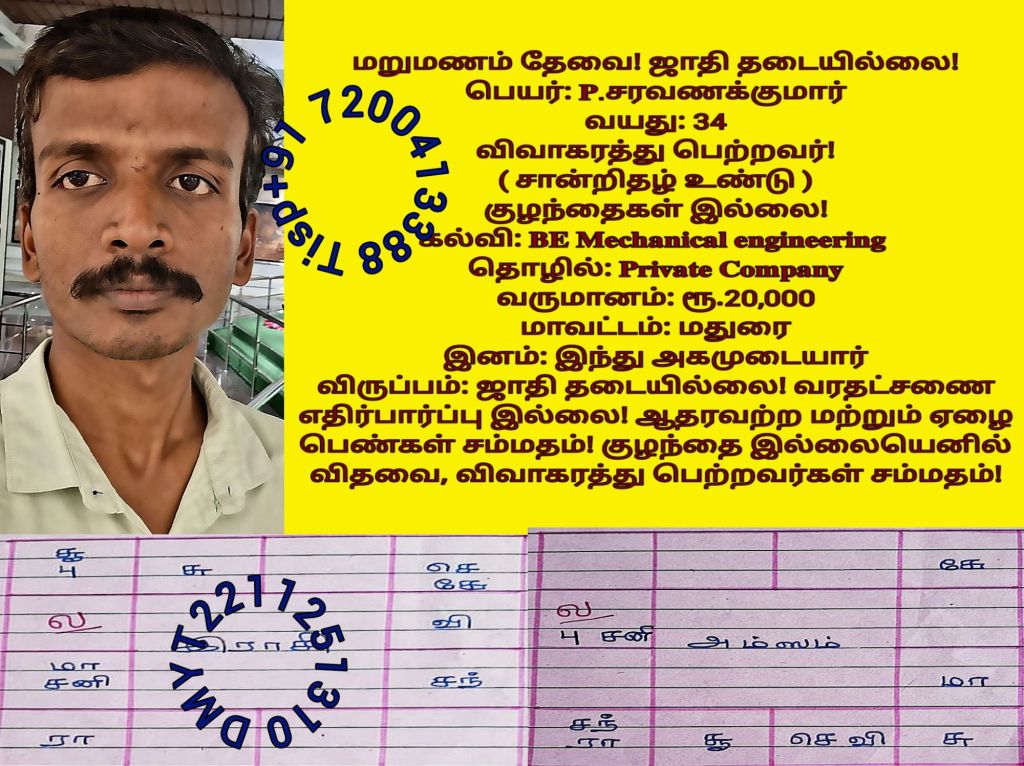 மறுமணம் தேவை! ஜாதி தடையில்லை!
பெயர்: P.சரவணக்குமார்
வயது: 34
விவாகரத்து பெற்றவர்!
( சான்றிதழ் உண்டு )
குழந்தைகள் இல்லை!
கல்வி: BE Mechanical engineering
தொழில்: Private Company
வருமானம்: ரூ.20,000
மாவட்டம்: மதுரை
இனம்: இந்து அகமுடையார்
விருப்பம்: ஜாதி தடையில்லை! வரதட்சணை
எதிர்பார்ப்பு இல்லை! ஆதரவற்ற மற்றும் ஏழை
பெண்கள் சம்மதம்! குழந்தை இல்லையெனில்
விதவை, விவாகரத்து பெற்றவர்கள் சம்மதம்!
Tisp+91 7200413388
சூ சு செ
பு கே
ல வி
இராசி
மா
சனி சந்
ரா
DMYT2211251310
கே
ல
பு சனி அம்ஸம்
மா
சந்
ரா சூ செ வி சு